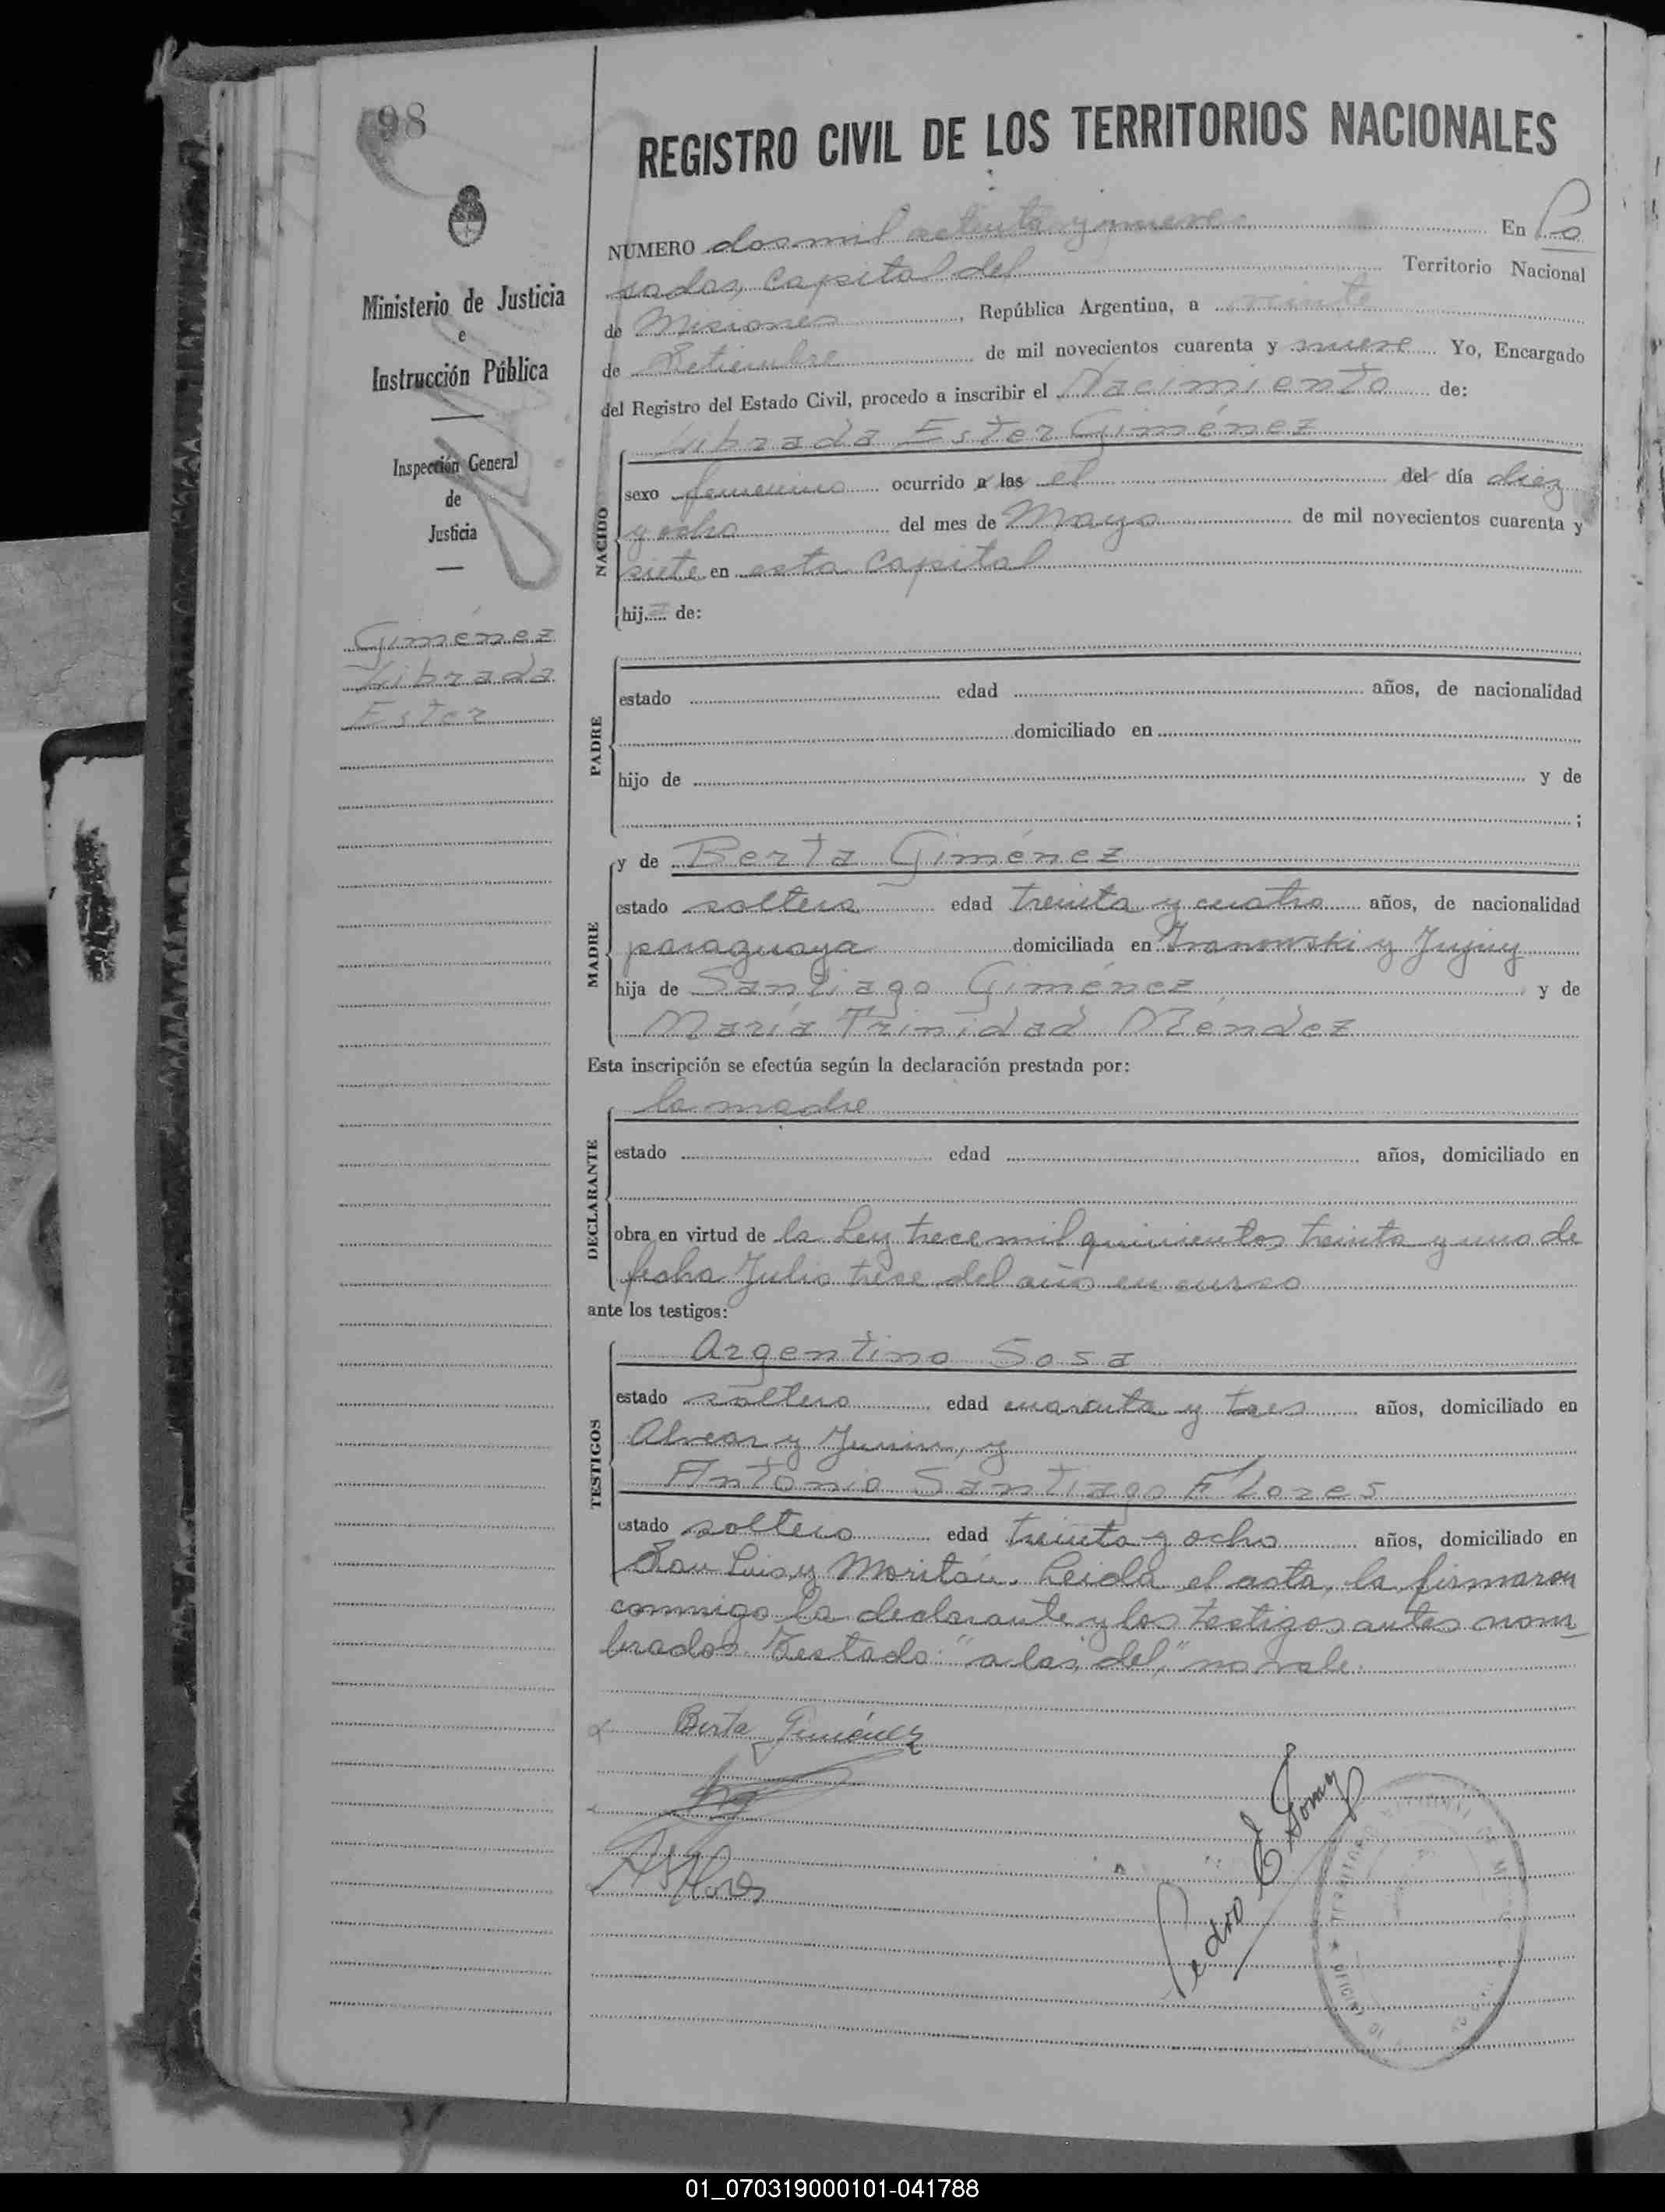 98
REGISTRO CIVIL DE LOS TERRITORIOS NACIONALES
NUMERO dos mil setenta y nueve En Po
sadas, Capital del Territorio Nacional
de Misiones, República Argentina, a veinte
de Setiembre de mil novecientos cuarenta y nueve Yo, Encargado
del Registro del Estado Civil, procedo a inscribir el Nacimiento de:
Librada Ester Giménez
NACIDO
sexo femenino ocurrido a las el del día diez
y ocho del mes de Mayo de mil novecientos cuarenta y
siete en esta Capital
hija de:
PADRE
estado edad años, de nacionalidad
domiciliado en
hijo de y de
;
MADRE
y de Berta Giménez
estado soltera edad treinta y cuatro años, de nacionalidad
paraguaya domiciliada en y Jujuy
hija de Santiago Giménez y de
María Trinidad Mendez
Esta inscripción se efectúa según la declaración prestada por:
DECLARANTE
la madre
estado edad años, domiciliado en
obra en virtud de la Ley trece mil quinientos treinta y uno de
fecha Julio trece del año en curso
ante los testigos:
TESTIGOS
Argentino Sosa
estado soltero edad cuarenta y tres años, domiciliado en
Alvear y Junin, y
Antonio Santiago Flores
estado soltero edad treinta y ocho años, domiciliado en
San Luis y Moritán. Leida el acta, la firmaron
conmigo la declarante y los testigos antes nom
brados. Testado: "a las, del," no vale.
Berta Giménez
A S Flores
Pedro E Gomez
Ministerio de Justicia
e
Instrucción Pública
Inspección General
de
Justicia
Giménez
Librada
Ester
01_070319000101-041788